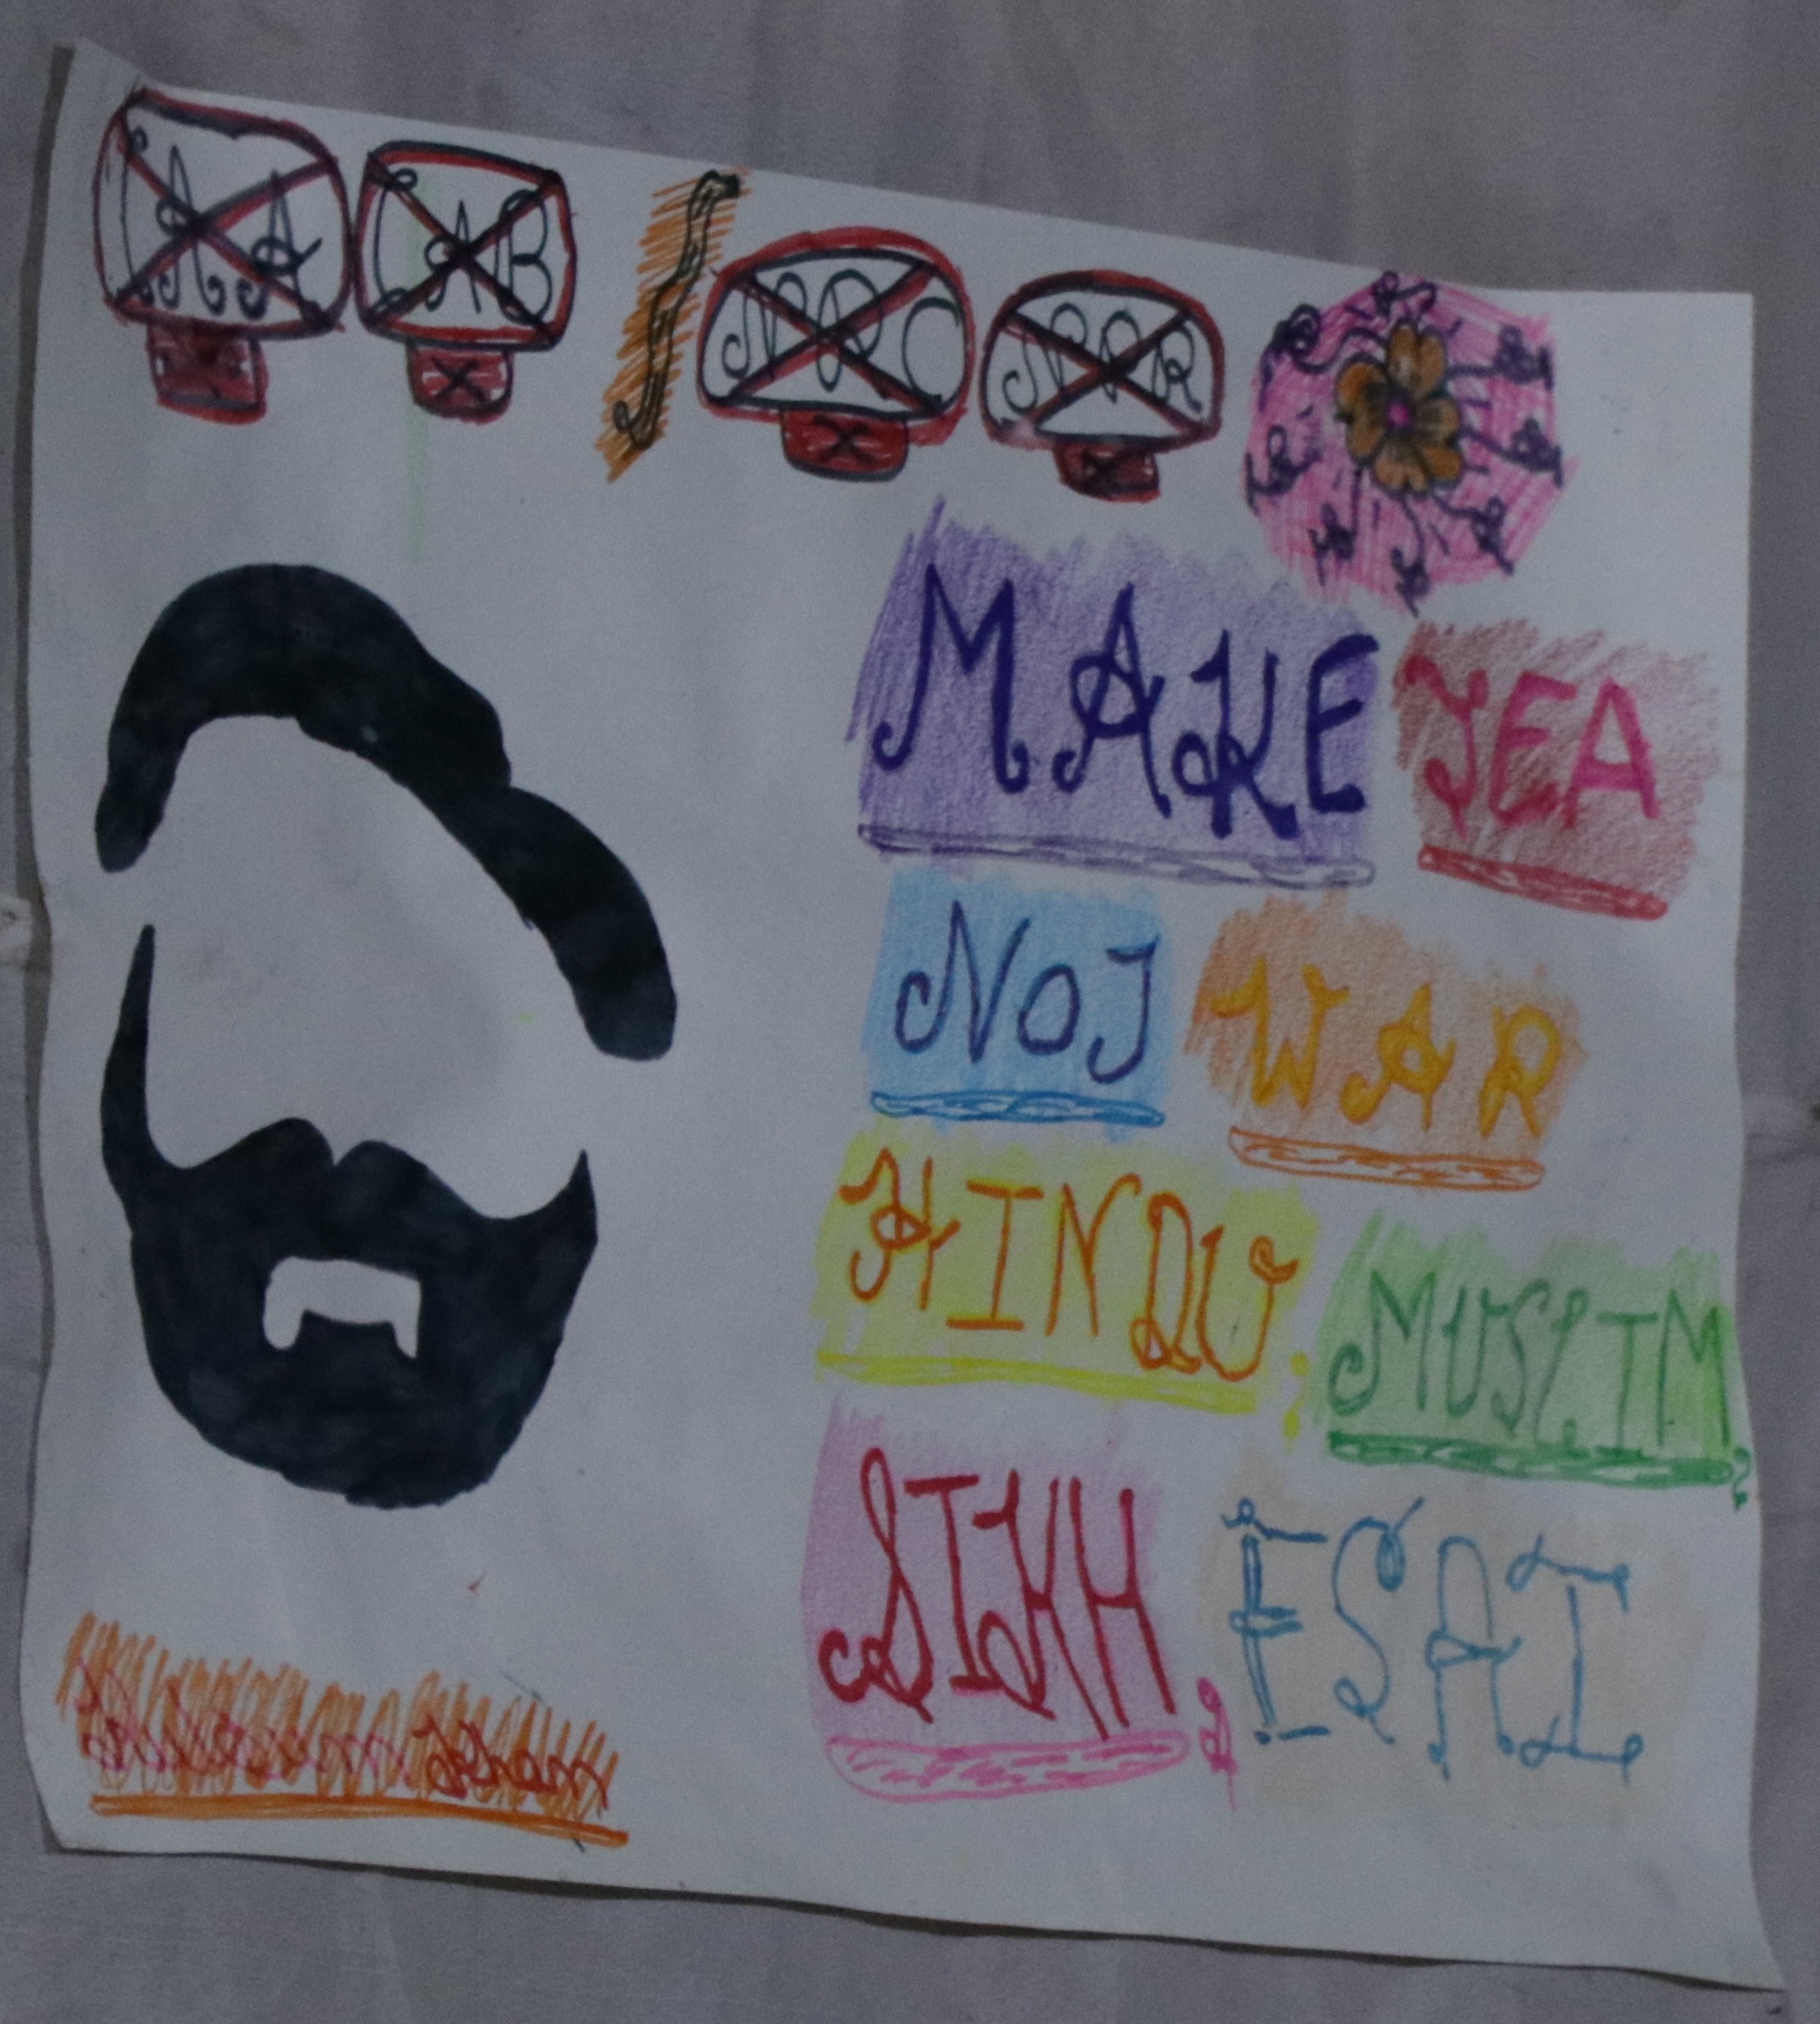 CAA CAB / NRC NPR
MAKE TEA
NOT WAR
HINDU, MUSLIM,
SIKH, ESAI